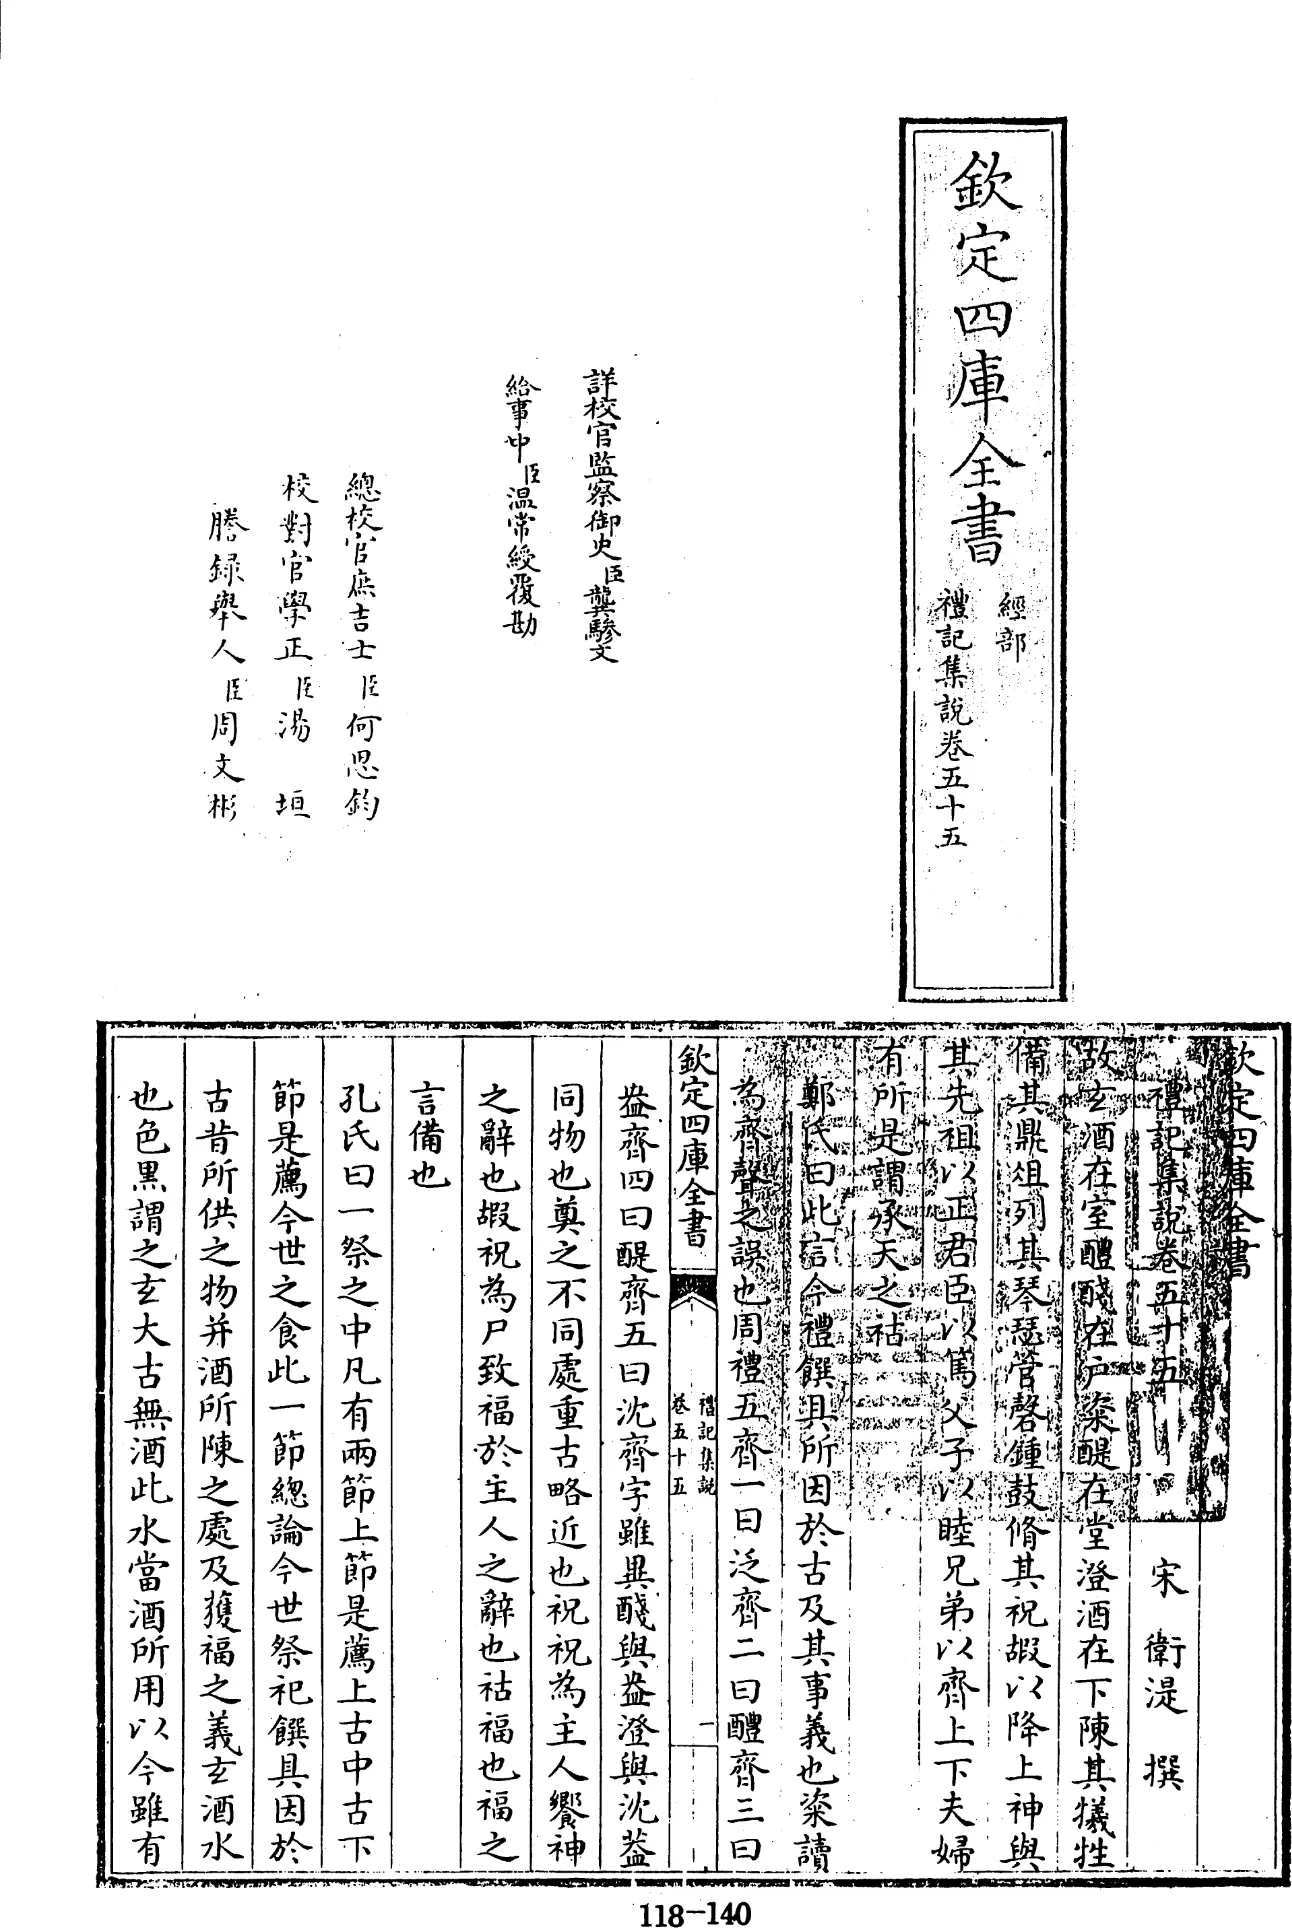 欽定四庫全書
經部
禮記集說卷五十五
詳校官監察御史臣龔驂文
給事中臣溫常綬覆勘
總校官庶吉士臣何思鈞
校對官學正臣湯垣
謄錄舉人臣周文彬
欽定四庫全書
禮記集說卷五十五 宋 衛湜 撰
故玄酒在室醴醆在戶粢醍在堂澄酒在下陳其犧牲
備其鼎俎列其琴瑟管磬鍾鼓脩其祝嘏以降上神與
其先祖以正君臣以篤父子以睦兄弟以齊上下夫婦
有所是謂承天之祜
鄭氏曰此言今禮饌具所因於古及其事義也粢讀
為齊聲之誤也周禮五齊一曰泛齊二曰醴齊三曰
欽定四庫全書
禮記集說
卷五十五
一
盎齊四曰醍齊五曰沈齊字雖異醆與盎澄與沈蓋
同物也奠之不同處重古略近也祝祝為主人饗神
之辭也嘏祝為尸致福於主人之辭也祜福也福之
言備也
孔氏曰一祭之中凡有兩節上節是薦上古中古下
節是薦今世之食此一節總論今世祭祀饌具因於
古昔所供之物并酒所陳之處及獲福之義玄酒水
也色黑謂之玄大古無酒此水當酒所用以今雖有
118-140